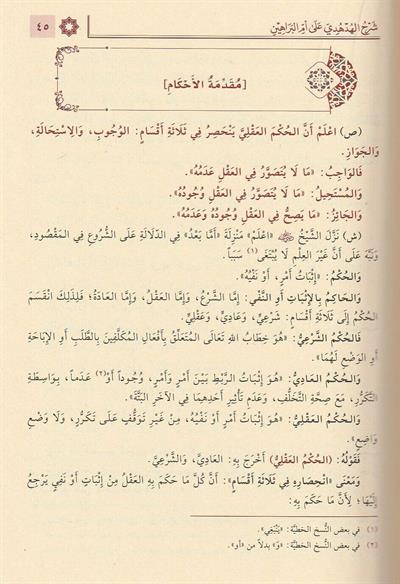 شَرْحُ الهُدْهُدِيِّ عَلَى أُمِّ البَرَاهِيْنِ
٤٥
[مُقَدِّمَةُ الأَحْكَامِ]
(ص) اعْلَمْ أَنَّ الحُكْمَ العَقْلِيَّ يَنْحَصِرُ فِي ثَلَاثَةِ أَقْسَامٍ: الوُجُوبِ، وَالِاسْتِحَالَةِ،
وَالجَوَازِ.
فَالوَاجِبُ: «مَا لَا يُتَصَوَّرُ فِي العَقْلِ عَدَمُهُ».
وَالمُسْتَحِيلُ: «مَا لَا يُتَصَوَّرُ فِي العَقْلِ وُجُودُهُ».
وَالجَائِزُ: «مَا يَصِحُّ فِي العَقْلِ وُجُودُهُ وَعَدَمُهُ».
(ش) نَزَّلَ الشَّيْخُ «اعْلَمْ» مَنْزِلَةَ «أَمَّا بَعْدُ» فِي الدِّلَالَةِ عَلَى الشُّرُوعِ فِي المَقْصُودِ،
وَنَبَّهَ عَلَى أَنَّ غَيْرَ العِلْمِ لَا يُبْتَغَى(١) سَبَباً.
وَالحُكْمُ: «إِثْبَاتُ أَمْرٍ، أَوْ نَفْيُهُ».
وَالحَاكِمُ بِالإِثْبَاتِ أَوِ النَّفْيِ: إِمَّا الشَّرْعُ، وَإِمَّا العَقْلُ، وَإِمَّا العَادَةُ؛ فَلِذَلِكَ انْقَسَمَ
الحُكْمُ إِلَى ثَلَاثَةِ أَقْسَامٍ: شَرْعِيٍّ، وَعَادِيٍّ، وَعَقْلِيٍّ.
فَالحُكْمُ الشَّرْعِيُّ: «هُوَ خِطَابُ اللهِ تَعَالَى المُتَعَلِّقُ بِأَفْعَالِ المُكَلَّفِينَ بِالطَّلَبِ أَوِ الإِبَاحَةِ
أَوِ الوَضْعِ لَهُمَا».
وَالحُكْمُ العَادِيُّ: «هُوَ إِثْبَاتُ الرَّبْطِ بَيْنَ أَمْرٍ وَأَمْرٍ، وُجُوداً أَوْ(٢) عَدَماً، بِوَاسِطَةِ
التَّكَرُّرِ، مَعَ صِحَّةِ التَّخَلُّفِ، وَعَدَمِ تَأْثِيرِ أَحَدِهِمَا فِي الآخَرِ البَتَّةَ».
وَالحُكْمُ العَقْلِيُّ: «هُوَ إِثْبَاتُ أَمْرٍ أَوْ نَفْيُهُ، مِنْ غَيْرِ تَوَقُّفٍ عَلَى تَكَرُّرٍ، وَلَا وَضْعِ
وَاضِعٍ».
فَقَوْلُهُ: (الحُكْمُ العَقْلِيُّ) أَخْرَجَ بِهِ: العَادِيَّ، وَالشَّرْعِيَّ.
وَمَعْنَى «انْحِصَارِهِ فِي ثَلَاثَةِ أَقْسَامٍ»: أَنَّ كُلَّ مَا حَكَمَ بِهِ العَقْلُ مِنْ إِثْبَاتٍ أَوْ نَفْيٍ يَرْجِعُ
إِلَيْهَا؛ لِأَنَّ مَا حَكَمَ بِهِ:
(١) في بعض النُّسخ الخطيَّة: «يَنْبَغِي».
(٢) في بعض النُّسخ الخطيَّة: «وَ» بدلاً من «أو».